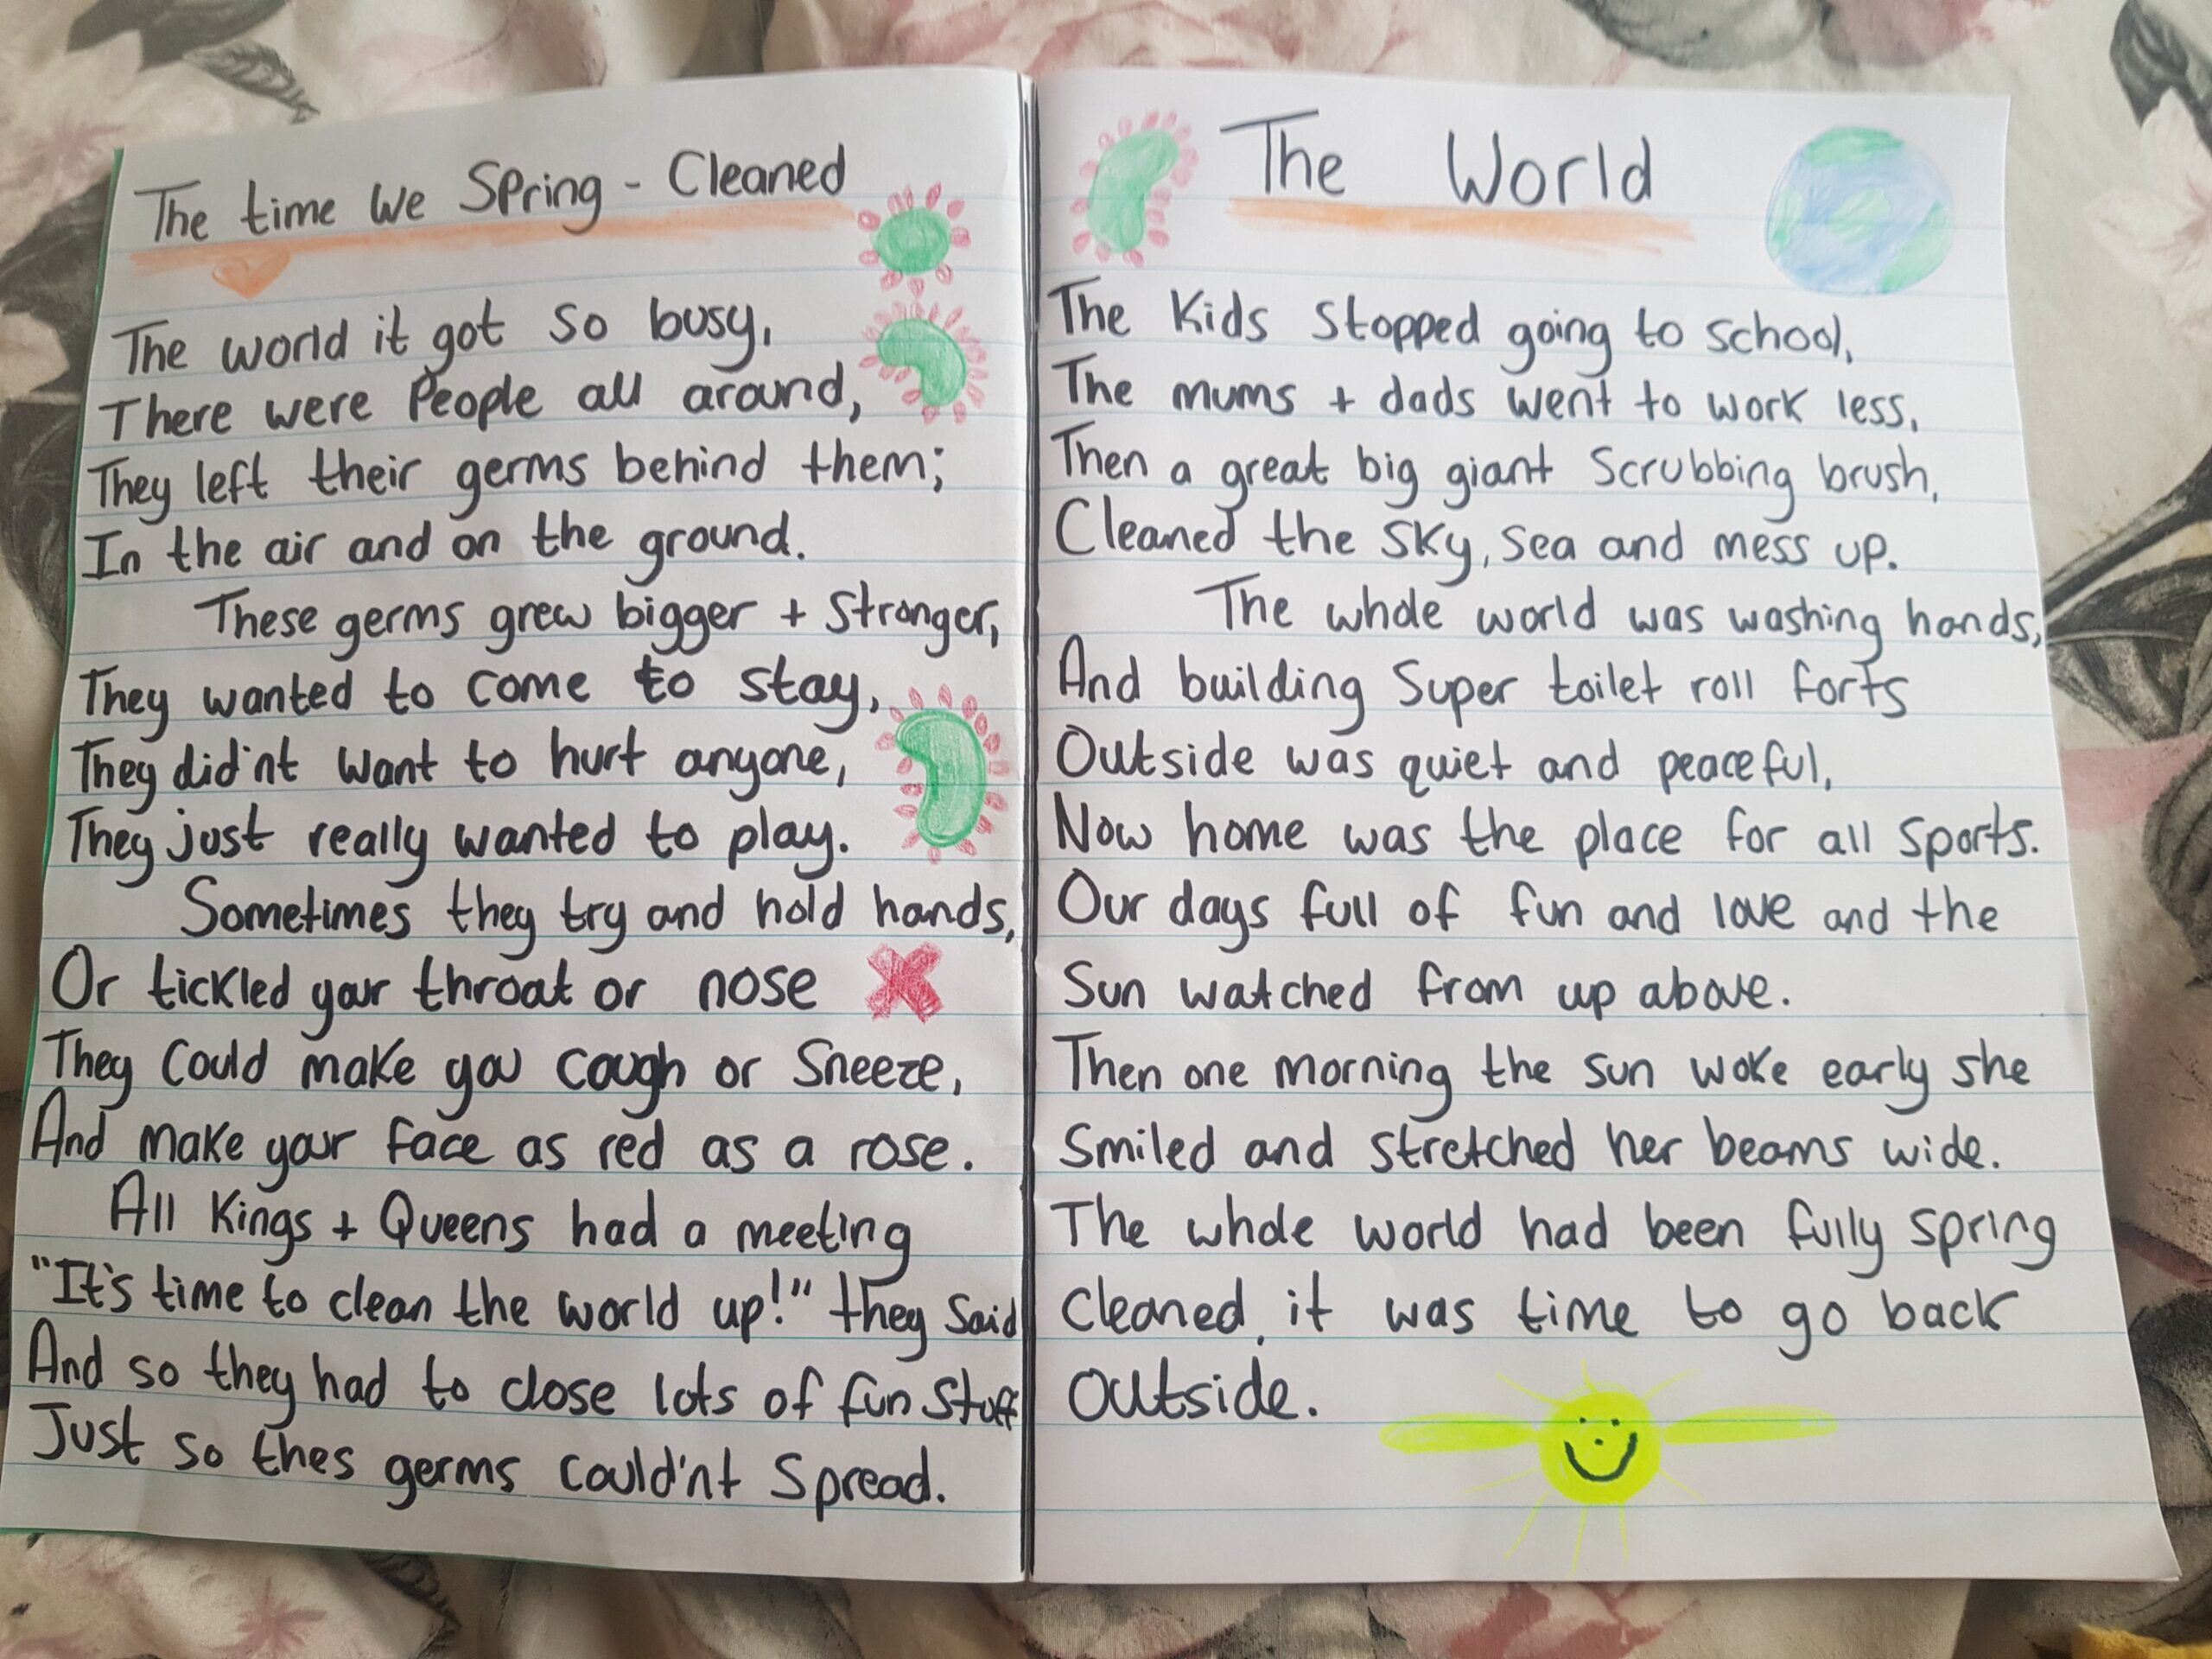 The time We Spring - Cleaned
The world it got so busy,
There were People all around,
They left their germs behind them;
In the air and on the ground.
These germs grew bigger + Stronger,
They wanted to come to stay,
They did'nt want to hurt anyone,
They just really wanted to play.
Sometimes they try and hold hands,
Or tickled your throat or nose
They Could make you cough or Sneeze,
And make your face as red as a rose.
All Kings + Queens had a meeting
"It's time to clean the world up!" they Said
And so they had to close lots of fun Stuff
Just so thes germs could'nt Spread.
The World
The Kids Stopped going to school,
The mums + dads went to work less,
Then a great big giant Scrubbing brush,
Cleaned the Sky, Sea and mess up.
The whole world was washing hands,
And building Super toilet roll forts
Outside was quiet and peaceful,
Now home was the place for all Sports.
Our days full of fun and love and the
Sun watched from up above.
Then one morning the sun woke early she
Smiled and stretched her beams wide.
The whole world had been fully spring
Cleaned, it was time to go back
Outside.